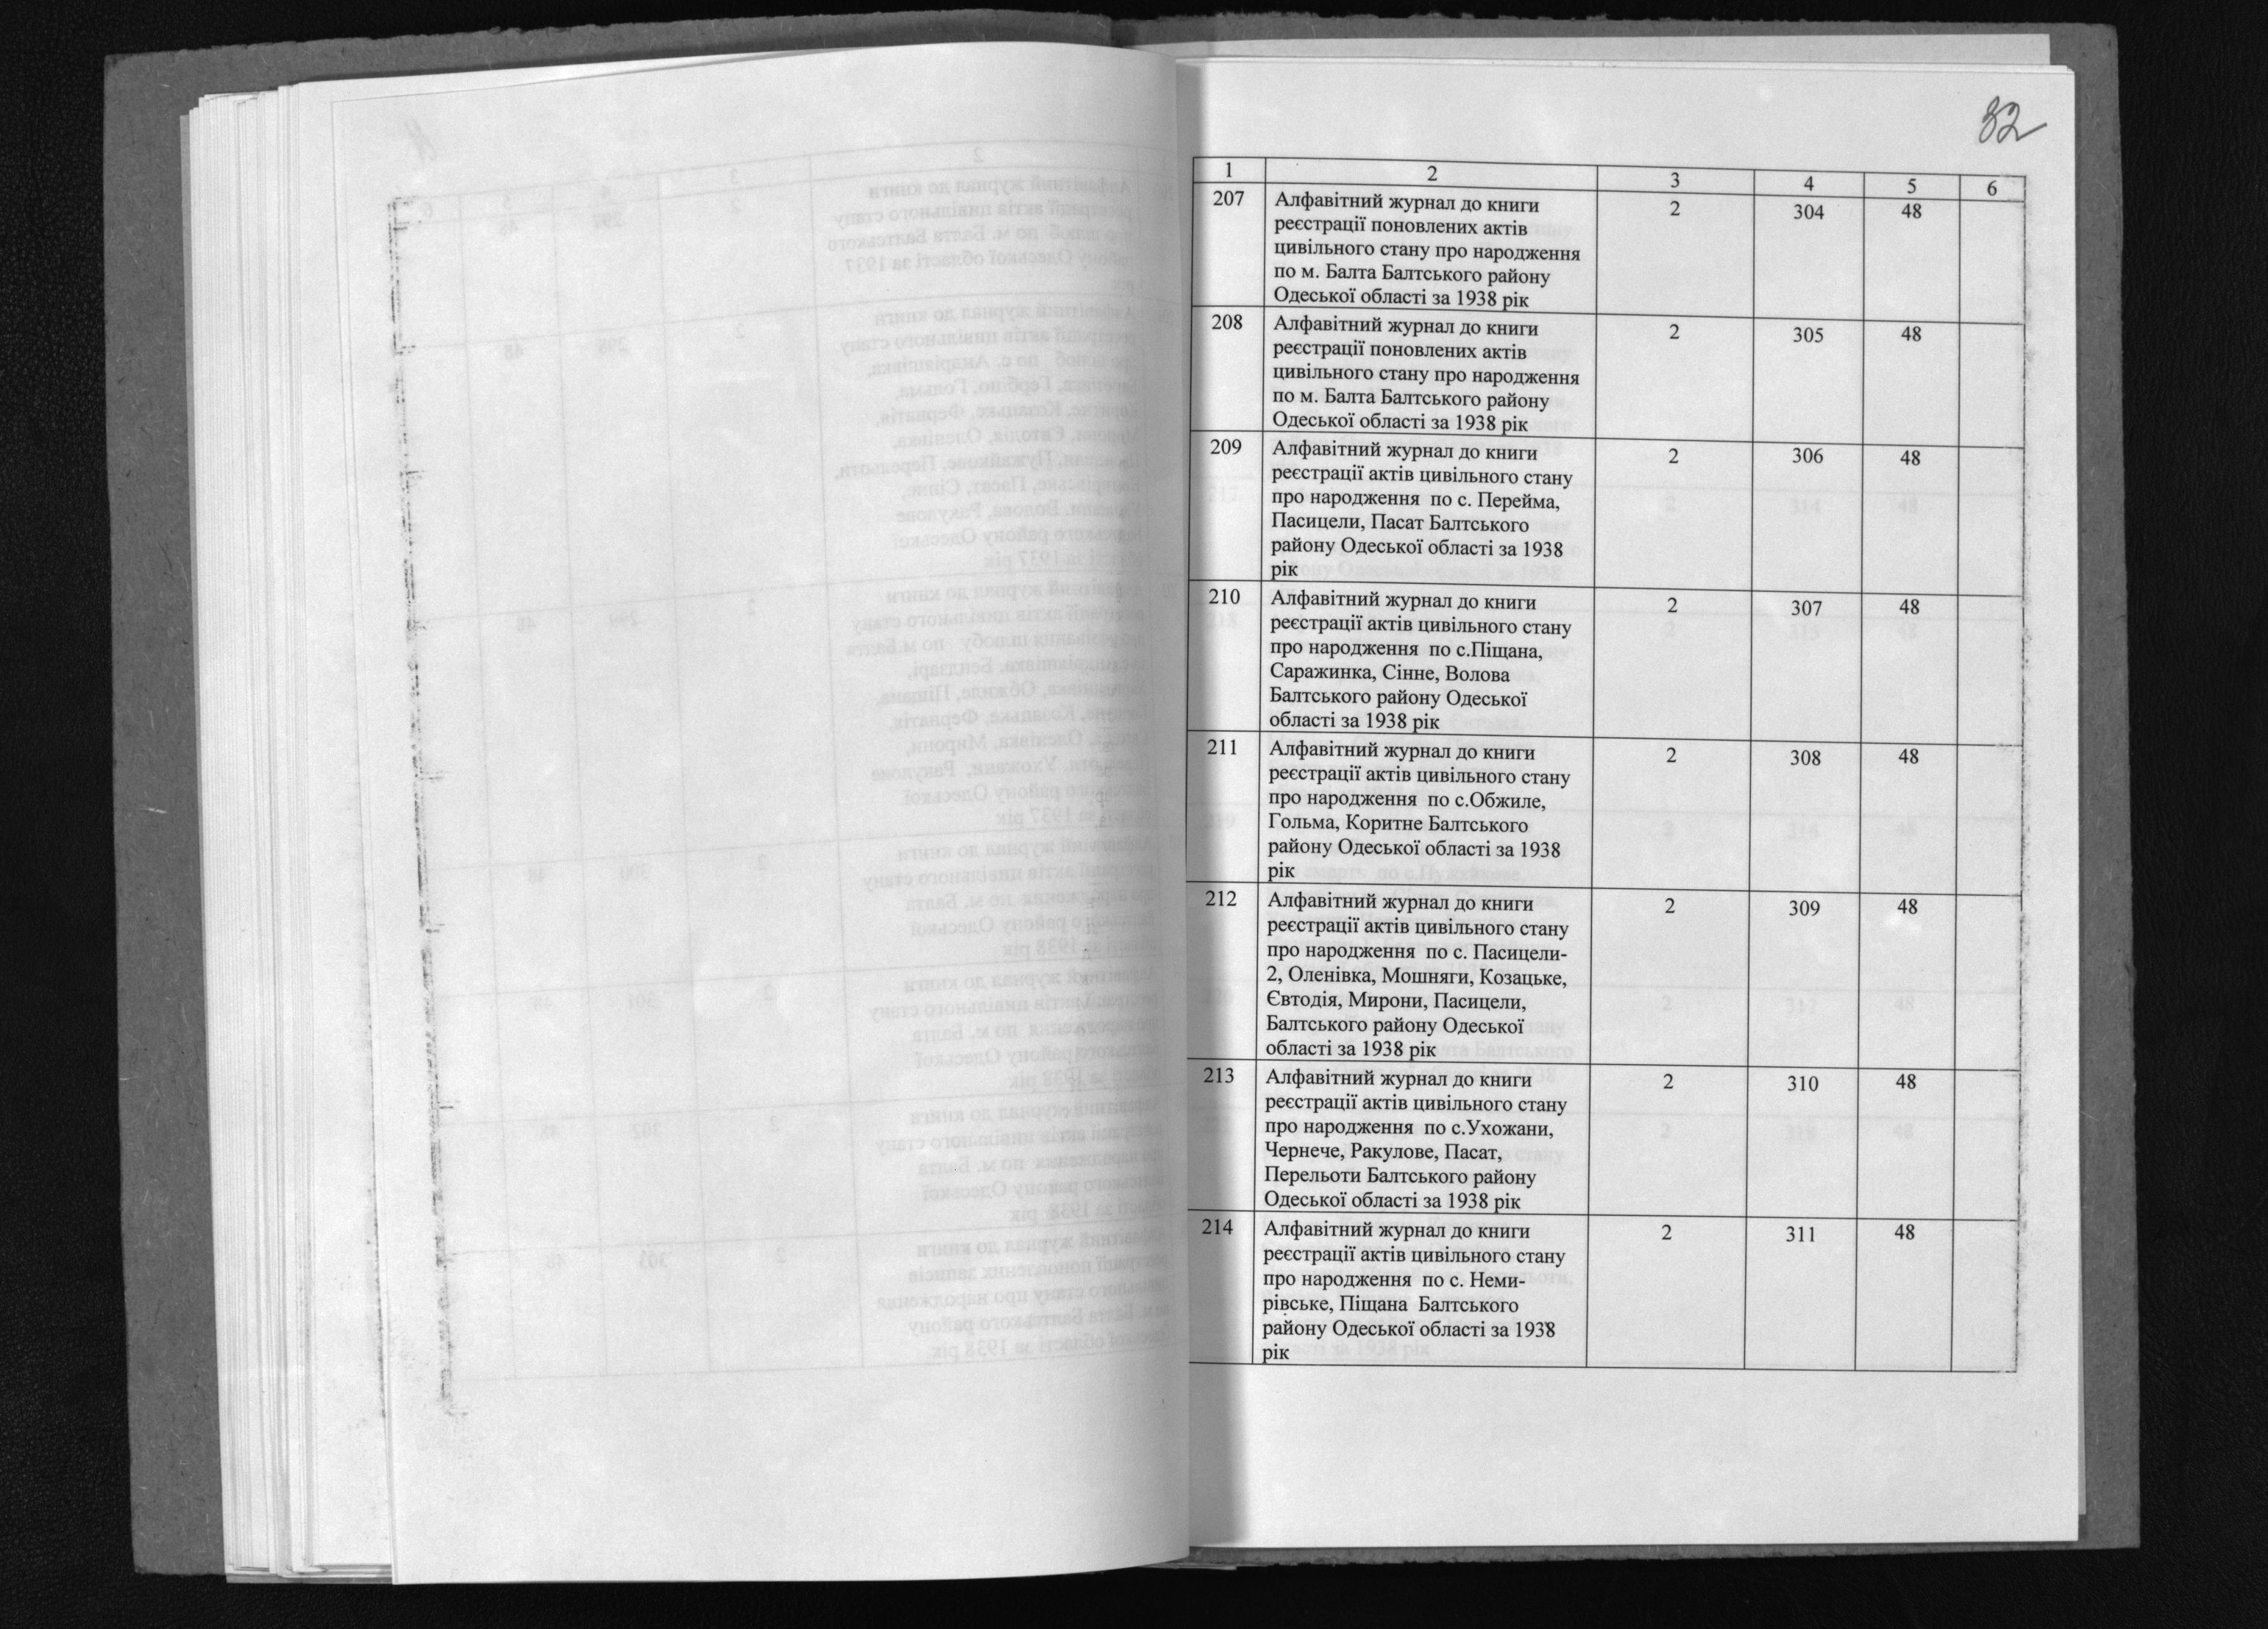 32
1 2 3 4 5 6
207 Алфавітний журнал до книги 2 304 48
реєстрації поновлених актів
цивільного стану про народження
по м. Балта Балтського району
Одеської області за 1938 рік
208 Алфавітний журнал до книги 2 305 48
реєстрації поновлених актів
цивільного стану про народження
по м. Балта Балтського району
Одеської області за 1938 рік
209 Алфавітний журнал до книги 2 306 48
реєстрації актів цивільного стану
про народження по с. Перейма,
Пасицели, Пасат Балтського
району Одеської області за 1938
рік
210 Алфавітний журнал до книги 2 307 48
реєстрації актів цивільного стану
про народження по с.Піщана,
Саражинка, Сінне, Волова
Балтського району Одеської
області за 1938 рік
211 Алфавітний журнал до книги 2 308 48
реєстрації актів цивільного стану
про народження по с.Обжиле,
Гольма, Коритне Балтського
району Одеської області за 1938
рік
212 Алфавітний журнал до книги 2 309 48
реєстрації актів цивільного стану
про народження по с. Пасицели-
2, Оленівка, Мошняги, Козацьке,
Євтодія, Мирони, Пасицели,
Балтського району Одеської
області за 1938 рік
213 Алфавітний журнал до книги 2 310 48
реєстрації актів цивільного стану
про народження по с.Ухожани,
Чернече, Ракулове, Пасат,
Перельоти Балтського району
Одеської області за 1938 рік
214 Алфавітний журнал до книги 2 311 48
реєстрації актів цивільного стану
про народження по с. Неми-
рівське, Піщана Балтського
району Одеської області за 1938
рік